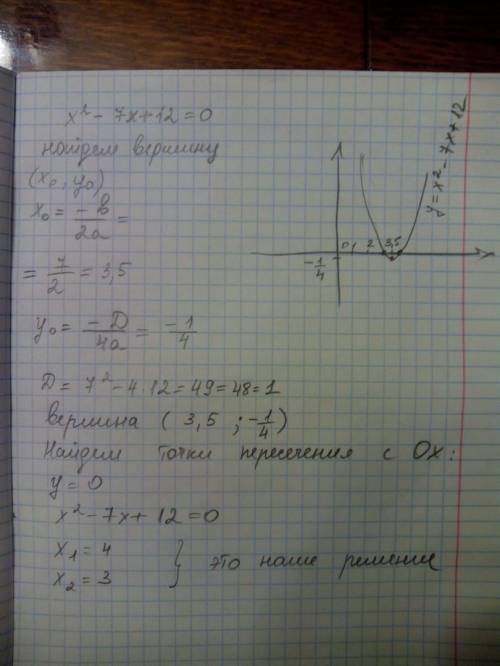 x² - 7x + 12 = 0
найдем вершину
(x₀, y₀)
x₀ = -b/2a =
= 7/2 = 3,5
y₀ = -D/4a = -1/4
D = 7² - 4·12 = 49 = 48 = 1
вершина ( 3,5 ; -1/4)
Найдем точки пересечения с Ox:
y = 0
x² - 7x + 12 = 0
x₁ = 4
x₂ = 3
} это наше решение
y = x² - 7x + 12
0 1 2 3,5
x
-1/4